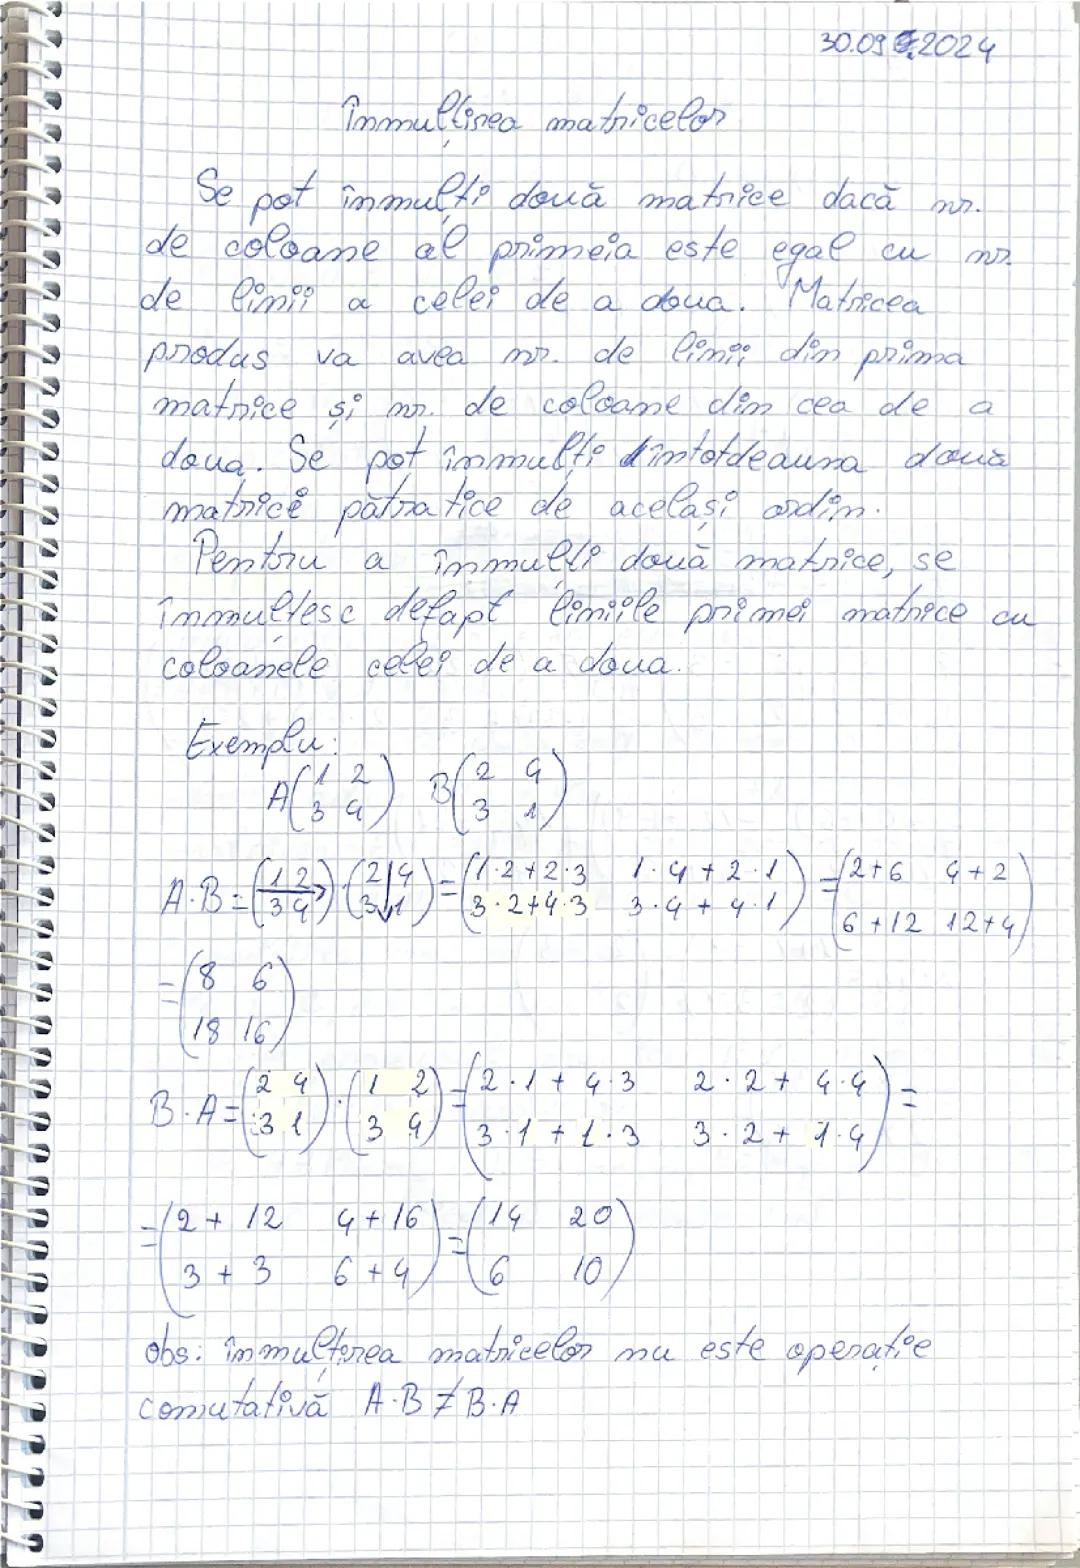 30.09.2024
Înmulțirea matricelor
Se pot înmulți două matrice dacă nr.
de coloane al primeia este egal cu nr.
de linii a celei de a doua. Matricea
produs va avea nr. de linii din prima
matrice și nr. de coloane din cea de a
doua. Se pot înmulți întotdeauna două
matrice pătratice de același ordin.
Pentru a înmulți două matrice, se
înmulțesc defapt liniile primei matrice cu
coloanele celei de a doua.
Exemplu:
A(1 2) B(2 4)
3 4 3 1
A·B=(1 2)·(2 4)=(1·2+2·3 1·4+2·1)=(2+6 4+2)
3 4 3 1 3·2+4·3 3·4+4·1 6+12 12+4
=(8 6)
18 16
B·A=(2 4)·(1 2)=(2·1+4·3 2·2+4·4)=
3 1 3 4 3·1+1·3 3·2+1·4
=(2+12 4+16)=(14 20)
3+3 6+4 6 10
obs: înmulțirea matricelor nu este operație
comutativă A·B≠B·A